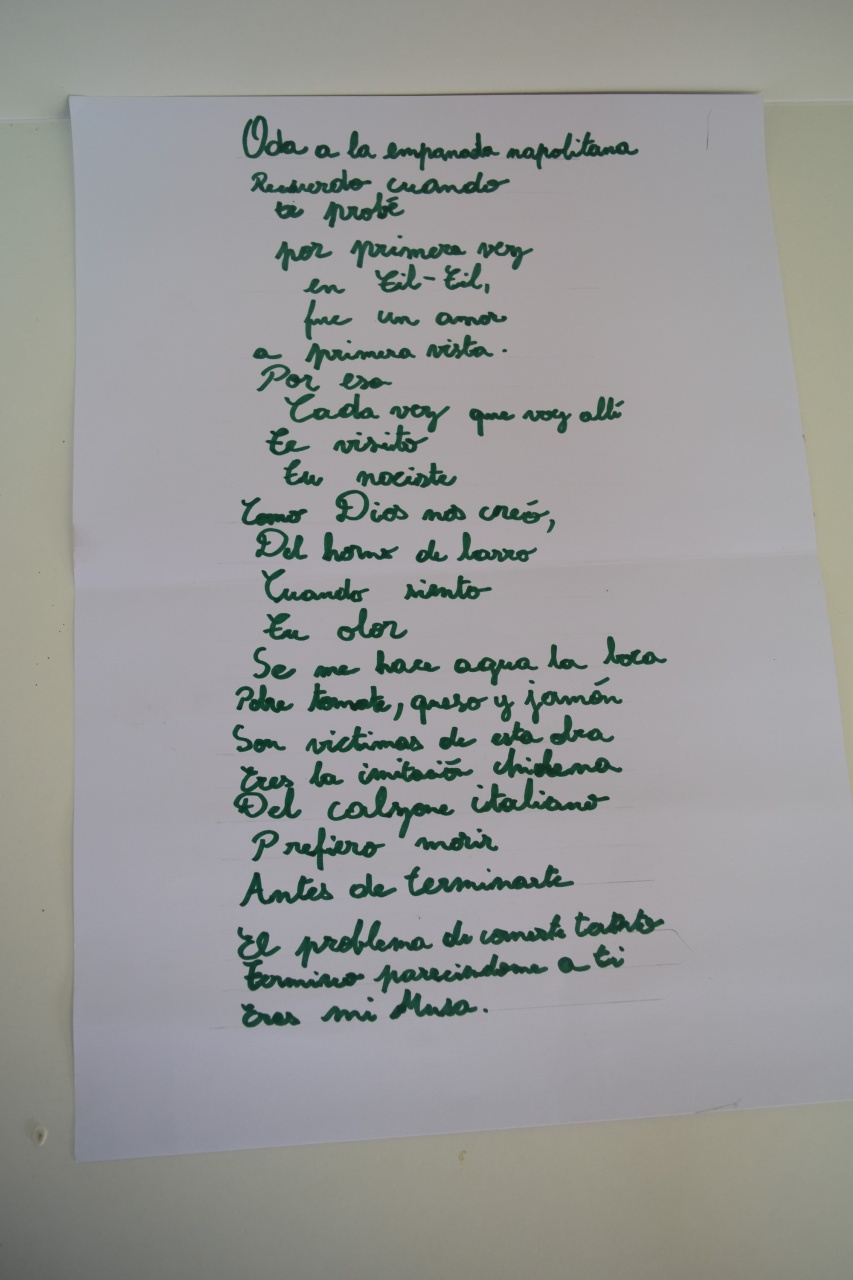 Oda a la empanada napolitana
Recuerdo cuando
te probé
por primera vez
en Til-Til,
fue un amor
a primera vista.
Por eso
Cada vez que voy allí
Te visito
Tu naciste
Como Dios nos creó,
Del horno de barro
Cuando siento
Tu olor
Se me hace agua la boca
Pobre tomate, queso y jamón
Son victimas de esta obra
Eres la imitación chilena
Del calzone italiano
Prefiero morir
Antes de terminarte
El problema de comerte tanto
Termino pareciendome a ti
Eres mi Musa.